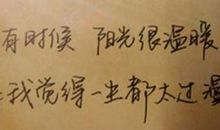 有时候 阳光很温暖
我觉得一生都太过漫